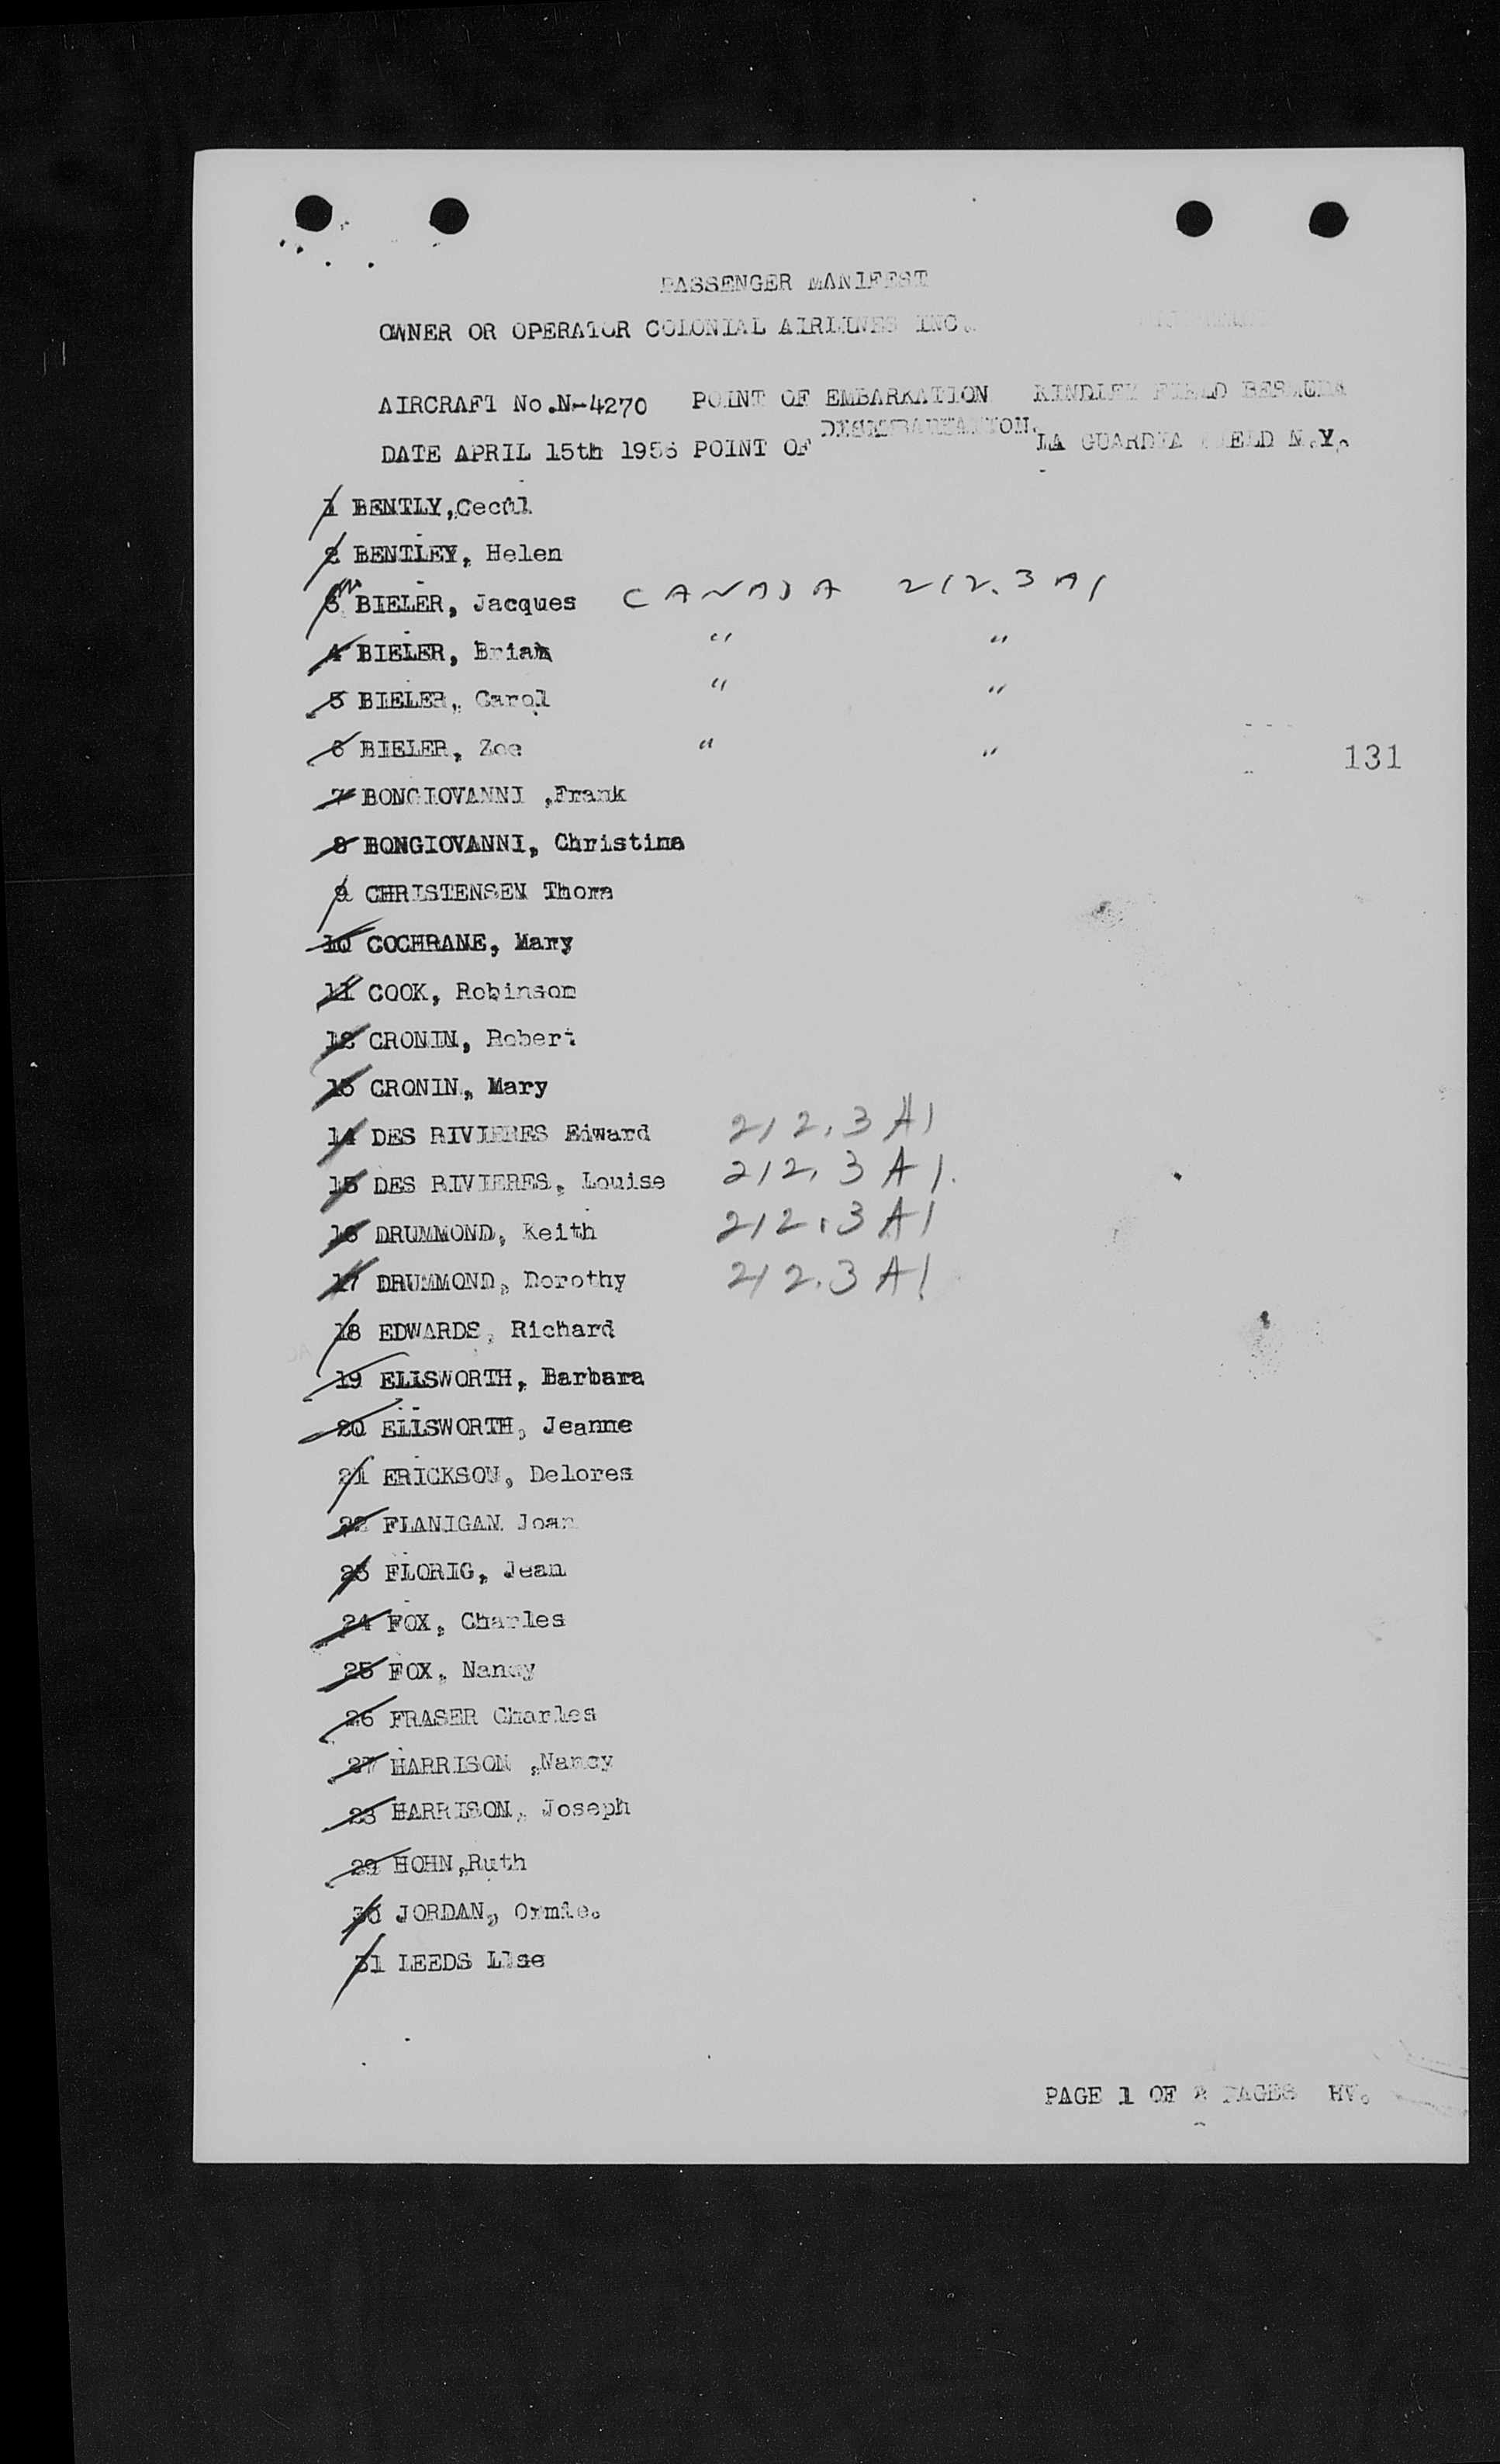 PASSENGER MANIFEST
OWNER OR OPERATOR COLONIAL AIRLINES INC.
AIRCRAFT No.N-4270 POINT OF EMBARKATION KINDLEY FIELD BERMUDA
DATE APRIL 15th 1956 POINT OF DESEMBARKATION. LA GUARDIA FIELD N.Y.
1 BENTLY,Cecil
2 BENTLEY, Helen
3 BIELER, Jacques CANADA 212.3 A1
4 BIELER, Brian " "
5 BIELER, Carol " "
6 BIELER, Zoe " "
131
7 BONGIOVANNI ,Frank
8 BONGIOVANNI, Christina
9 CHRISTENSEN Thora
10 COCHRANE, Mary
11 COOK, Robinson
12 CRONIN, Robert
13 CRONIN, Mary
14 DES RIVIERES Edward 212.3 A1
15 DES RIVIERES, Louise 212.3 A1.
16 DRUMMOND, Keith 212.3 A1
17 DRUMMOND, Dorothy 212.3 A1
18 EDWARDS, Richard
19 ELLSWORTH, Barbara
20 ELLSWORTH, Jeanne
21 ERICKSON, Delores
22 FLANIGAN Joan
23 FLORIG, Jean
24 FOX, Charles
25 FOX, Nancy
26 FRASER Charles
27 HARRISON ,Nancy
28 HARRISON, Joseph
29 HOHN,Ruth
30 JORDAN, Ormie.
31 LEEDS Llse
PAGE 1 OF 2 PAGES HV.